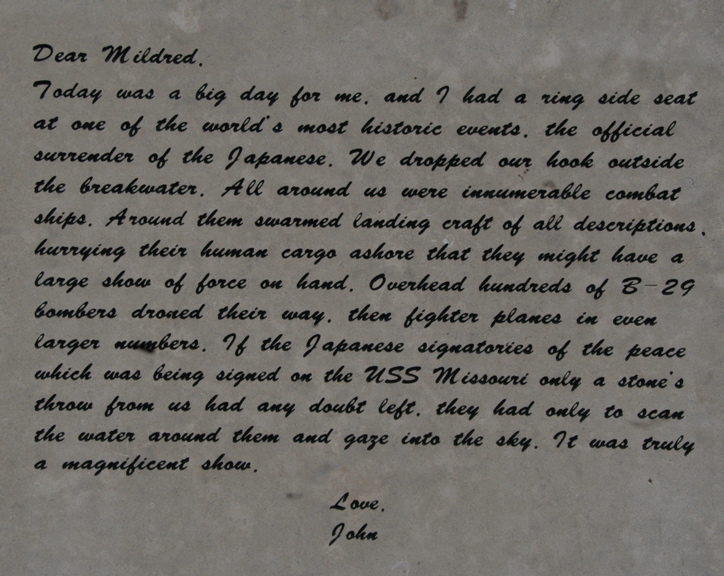 Dear Mildred,
Today was a big day for me, and I had a ring side seat
at one of the world's most historic events, the official
surrender of the Japanese. We dropped our hook outside
the breakwater. All around us were innumerable combat
ships. Around them swarmed landing craft of all descriptions,
hurrying their human cargo ashore that they might have a
large show of force on hand. Overhead hundreds of B-29
bombers droned their way, then fighter planes in even
larger numbers. If the Japanese signatories of the peace
which was being signed on the USS Missouri only a stone's
throw from us had any doubt left, they had only to scan
the water around them and gaze into the sky. It was truly
a magnificent show.
Love,
John